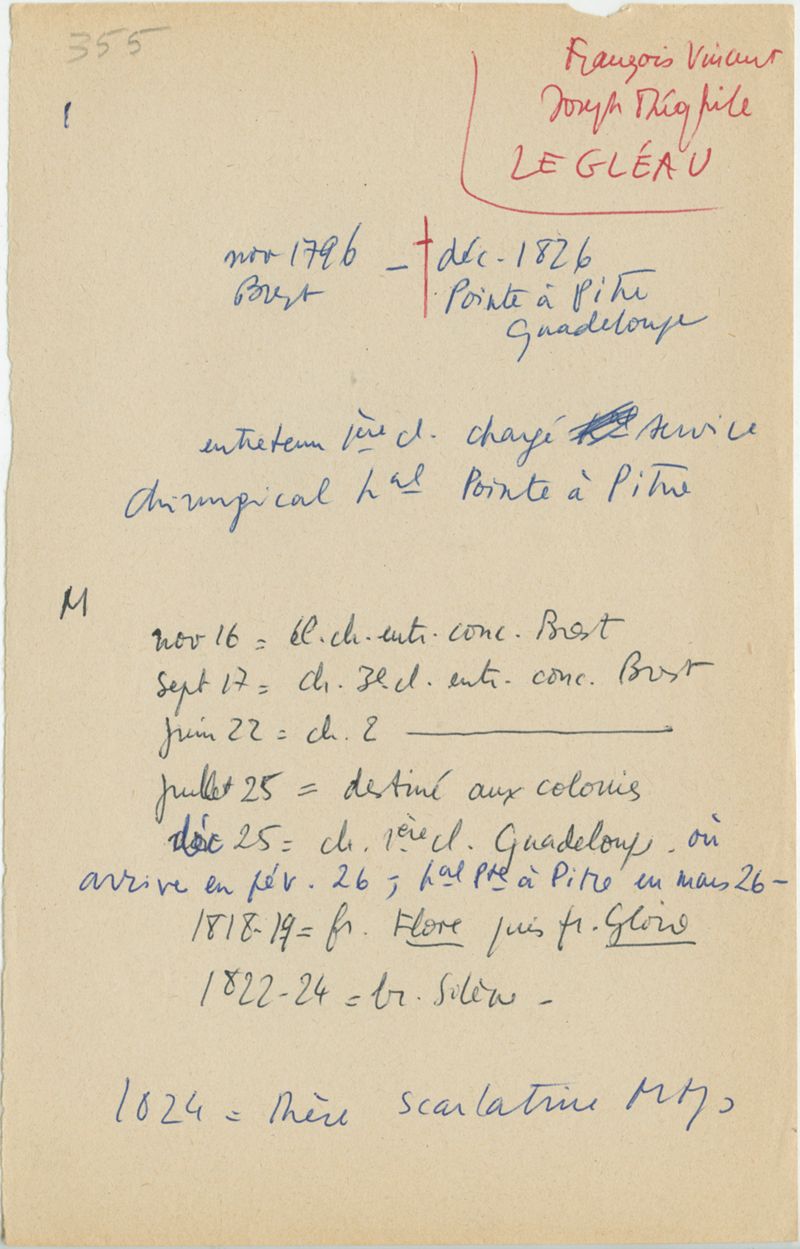 355
François Vincent
Joseph Théophile
LE GLÉAU
I
nov 1796 – † déc. 1826
Brest
Pointe à Pitre
Guadeloupe
entretenu 1ère cl. chargé service
chirurgical hal Pointe à Pitre
M
nov 16 = él. ch. entr. conc. Brest
sept 17 = ch. 3e cl. entr. conc. Brest
juin 22 = ch. 2 ———
juillet 25 = destiné aux colonies
déc 25 = ch. 1ère cl. Guadeloupe. où
arrive en fév. 26 ; hal Pte à Pitre en mars 26 –
1818-19 = fr. Flore puis fr. Gloire
1822-24 = br. Silène –
1824 = Thèse scarlatine